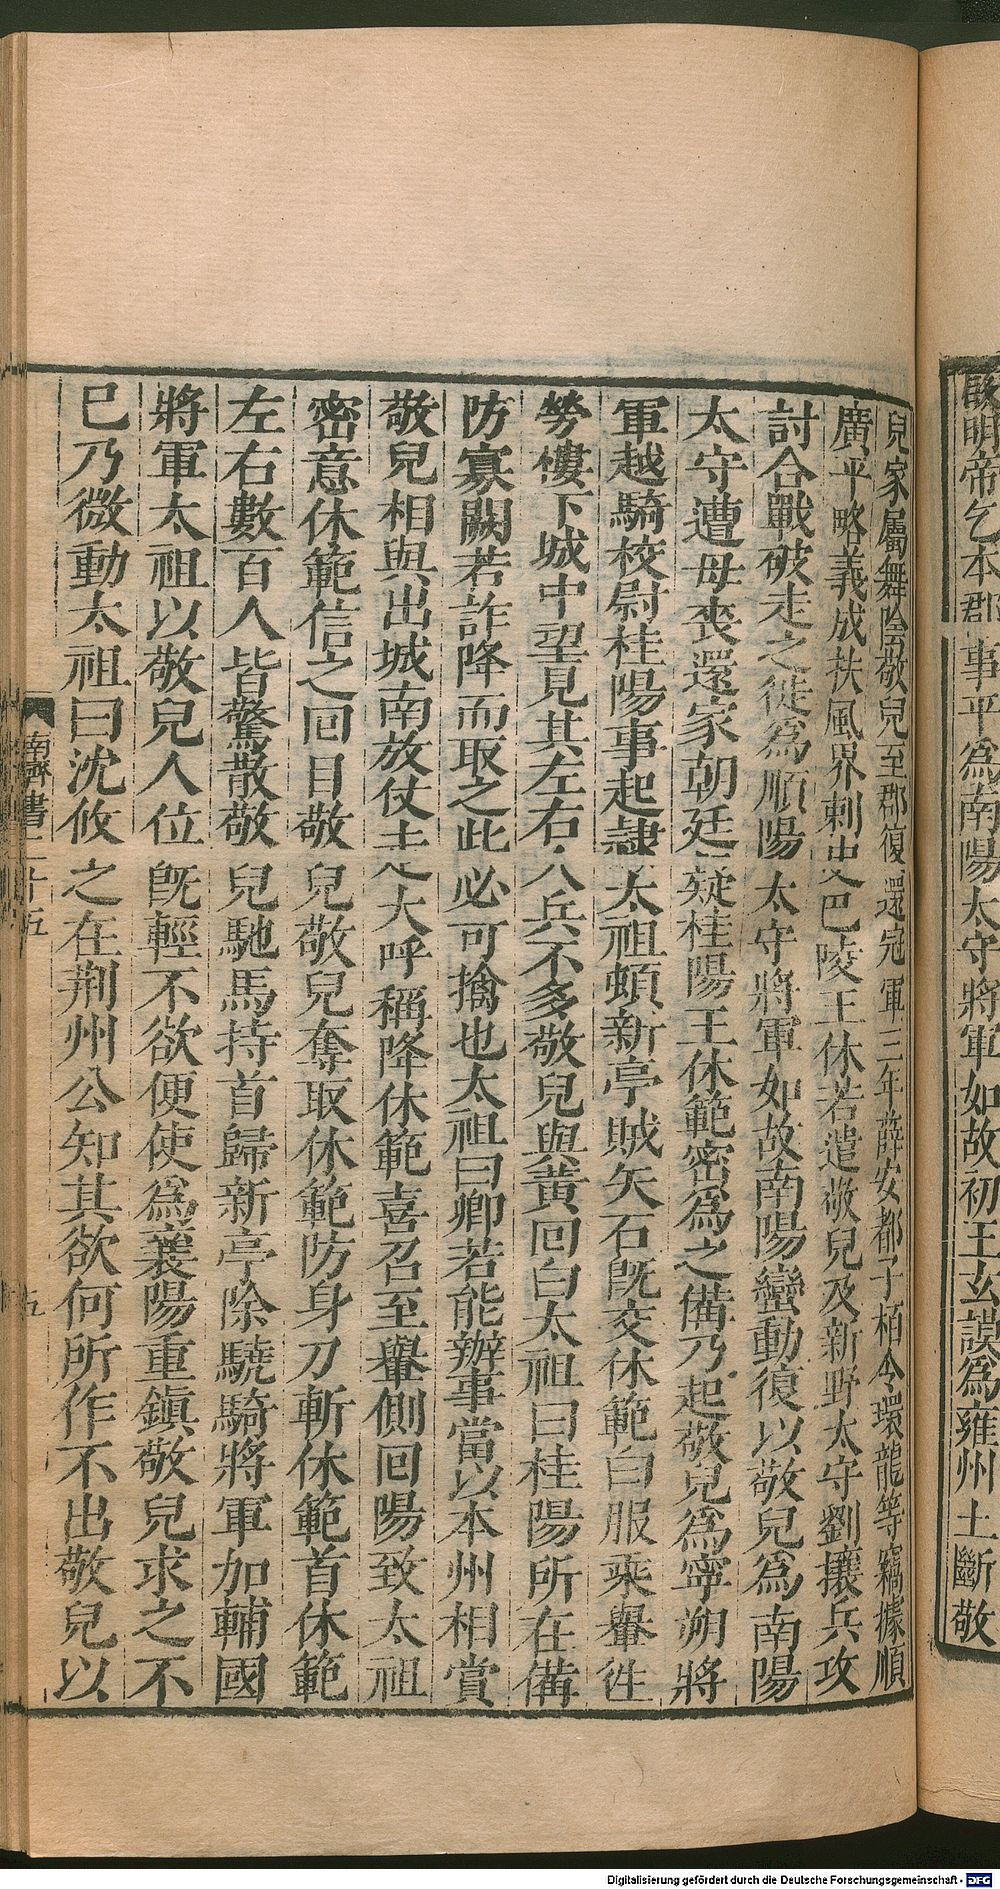 啟明帝乞本郡事平爲南陽太守將軍如故初王玄謨爲雍州土斷敬
兒家屬舞陰敬兒至郡復還冠軍三年薛安都子栢令環龍等竊據順
廣平略義成扶風界刺史巴陵王休若遣敬兒及新野太守劉攘兵攻
討合戰破走之徙爲順陽太守將軍如故南陽蠻動復以敬兒爲南陽
太守遭母喪還家朝廷疑桂陽王休範密爲之備乃起敬兒爲寧朔將
軍越騎校尉桂陽事起隸太祖頓新亭賊矢石旣交休範白服乘轝徃
勞樓下城中望見其左右人兵不多敬兒與黃回白太祖曰桂陽所在備
防寡闕若詐降而取之此必可擒也太祖曰卿若能辦事當以本州相賞
敬兒相與出城南放仗走大呼稱降休範喜召至轝側回陽致太祖
密意休範信之回目敬兒敬兒奪取休範防身刀斬休範首休範
左右數百人皆驚散敬兒馳馬持首歸新亭除驍騎將軍加輔國
將軍太祖以敬兒人位旣輕不欲便使爲襄陽重鎭敬兒求之不
巳乃微動太祖曰沈攸之在荆州公知其欲何所作不出敬兒以
南齊書二十五
五
Digitalisierung gefördert durch die Deutsche Forschungsgemeinschaft - DFG